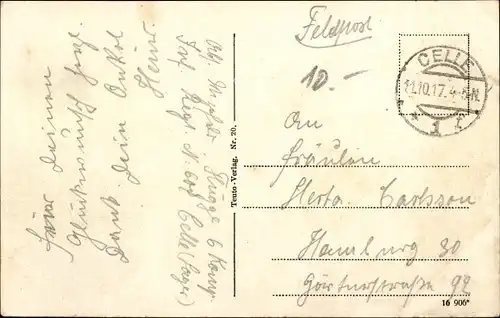 Für deinen
Glückwunsch sage
Dank. Dein Onkel
Heinr.
Abs. Musketier Krügge 6 Komp.
Celle (Lager)
Tento-Verlag. Nr. 20.
Feldpost
10.-
CELLE
11.10.17. 4-5N.
* 1 *
An
Fräulein
Herta Carlsson
Hamburg 30
Gärtnerstraße 92
16 906*